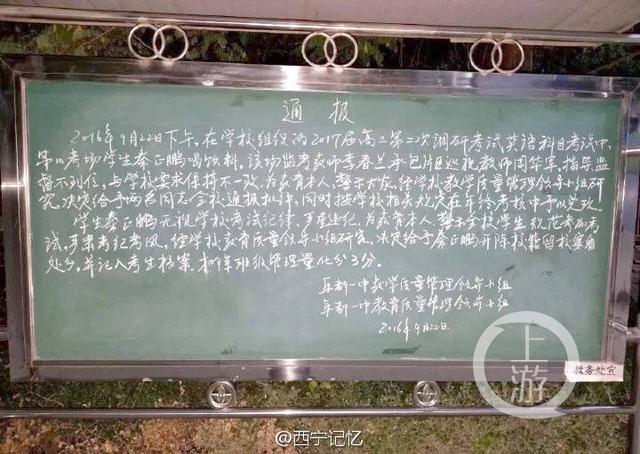 通报
2016年9月22日下午，在学校组织的2017届高三第二次调研考试英语科目考试中，
第10考场学生秦正鹏喝饮料，该场监考教师李春兰及包片区巡视教师周华军，指导、监
督不到位，与学校要求保持不一致。为教育本人，警示大家，经学校教学质量管理领导小组研
究，决定给予两名同志全校通报批评，同时按学校相关规定在年终考核中予以定夺。
学生秦正鹏无视学校考试纪律，严重违纪，为教育本人，警示全校学生规范参加考
试，严肃考纪考风，经学校教育质量领导小组研究，决定给予秦正鹏开除校籍留校察看
处分，并记入考生档案，扣年班级管理量化分3分。
乐都一中教学质量管理领导小组
乐都一中教育质量管理领导小组
2016年9月22日
教务处宣
上游
@西宁记忆